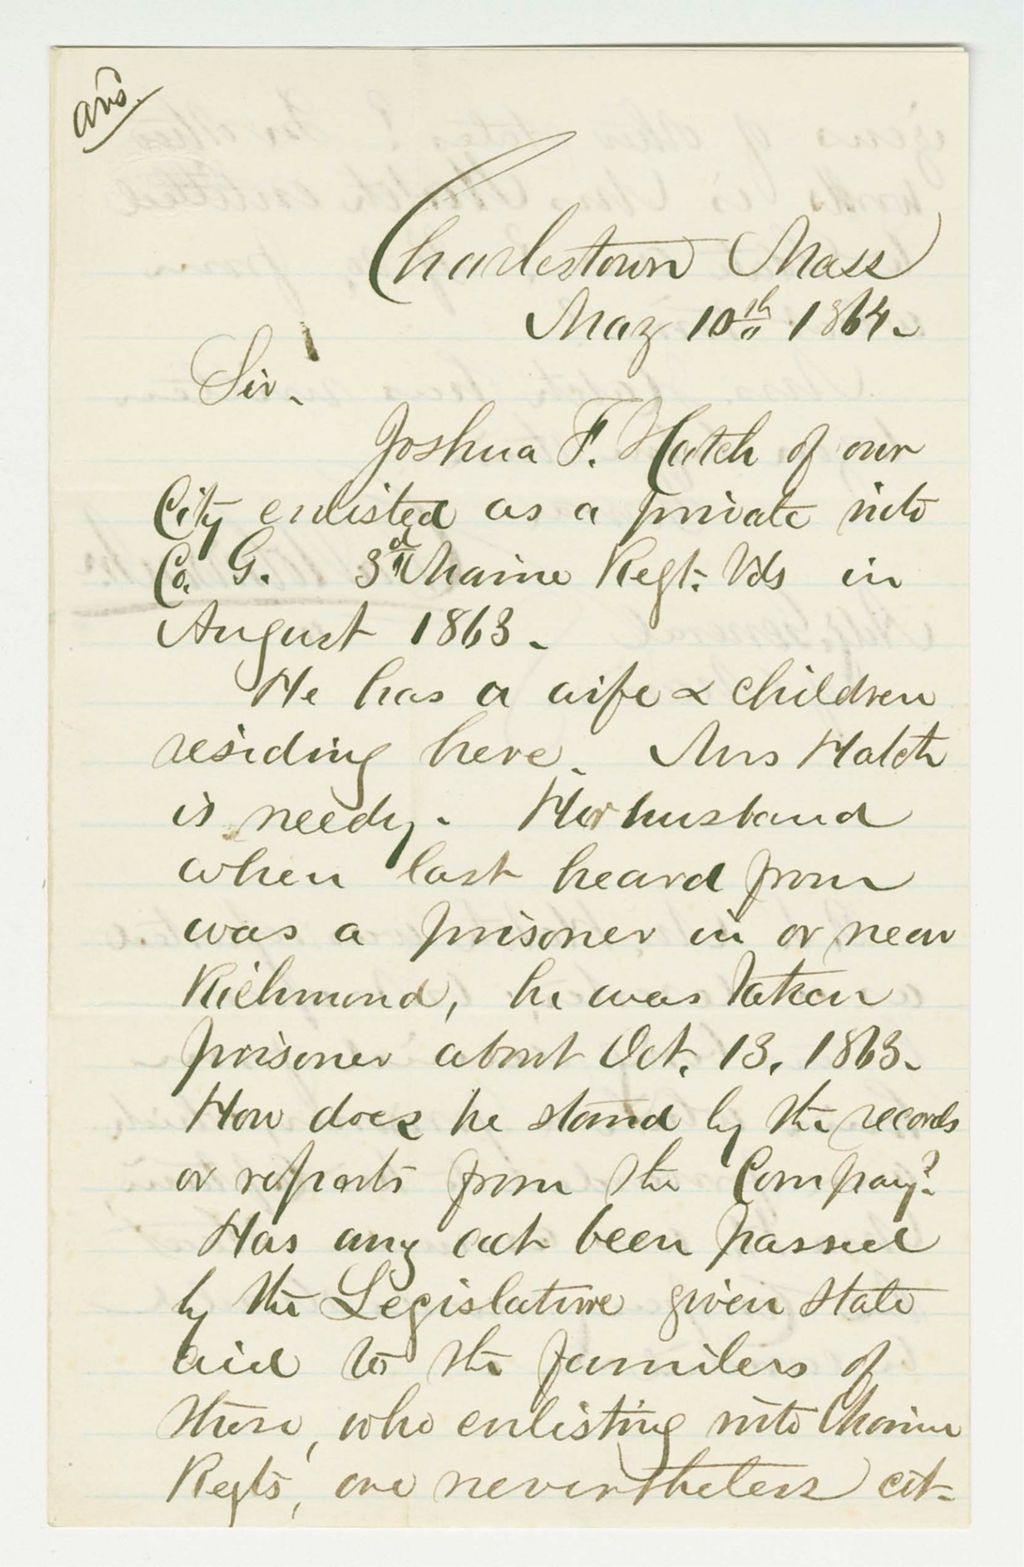 ans.
Charlestown Mass
May 10th 1864.
Sir.
Joshua F. Hatch of our
City enlisted as a private into
Co. G. 3d Maine Regt. Vols in
August 1863.
He has a wife & children
residing here. Mrs Hatch
is needy. Her husband
when last heard from
was a prisoner in or near
Richmond, he was taken
prisoner about Oct. 13, 1863.
How does he stand by the records
or reports from the Company?
Has any act been passed
by the Legislature given state
aid to the familers of
those, who enlisting into Maine
Regts, are nevertheless cit-